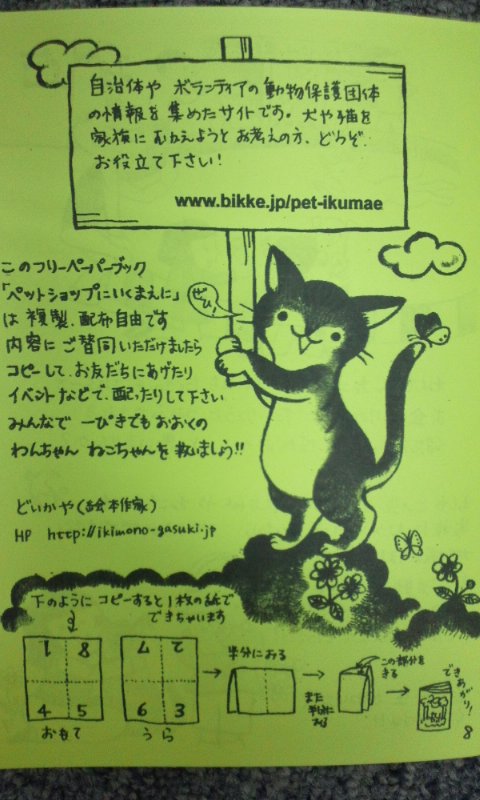 自治体や ボランティアの 動物保護団体
の情報を 集めたサイトです。犬や猫を
家族に むかえようと お考えの方、どうぞ
お役立て下さい!
www.bikke.jp/pet-ikumae
このフリーペーパーブック
「ペットショップにいくまえに」
は 複製、配布自由です
内容に ご賛同いただけましたら
コピーして、お友だちにあげたり
イベントなどで、配ったりして下さい
みんなで 一ぴきでも おおくの
わんちゃん ねこちゃんを 救いましょう!!
ぜひ!
どいかや(絵本作家)
HP http://ikimono-gasuki.jp
下のように コピーすると 1枚の紙で
できちゃいます
1 8
4 5
おもて
7 2
6 3
うら
半分におる
また
半分に
おる
この部分を
きる
できあがり!
8